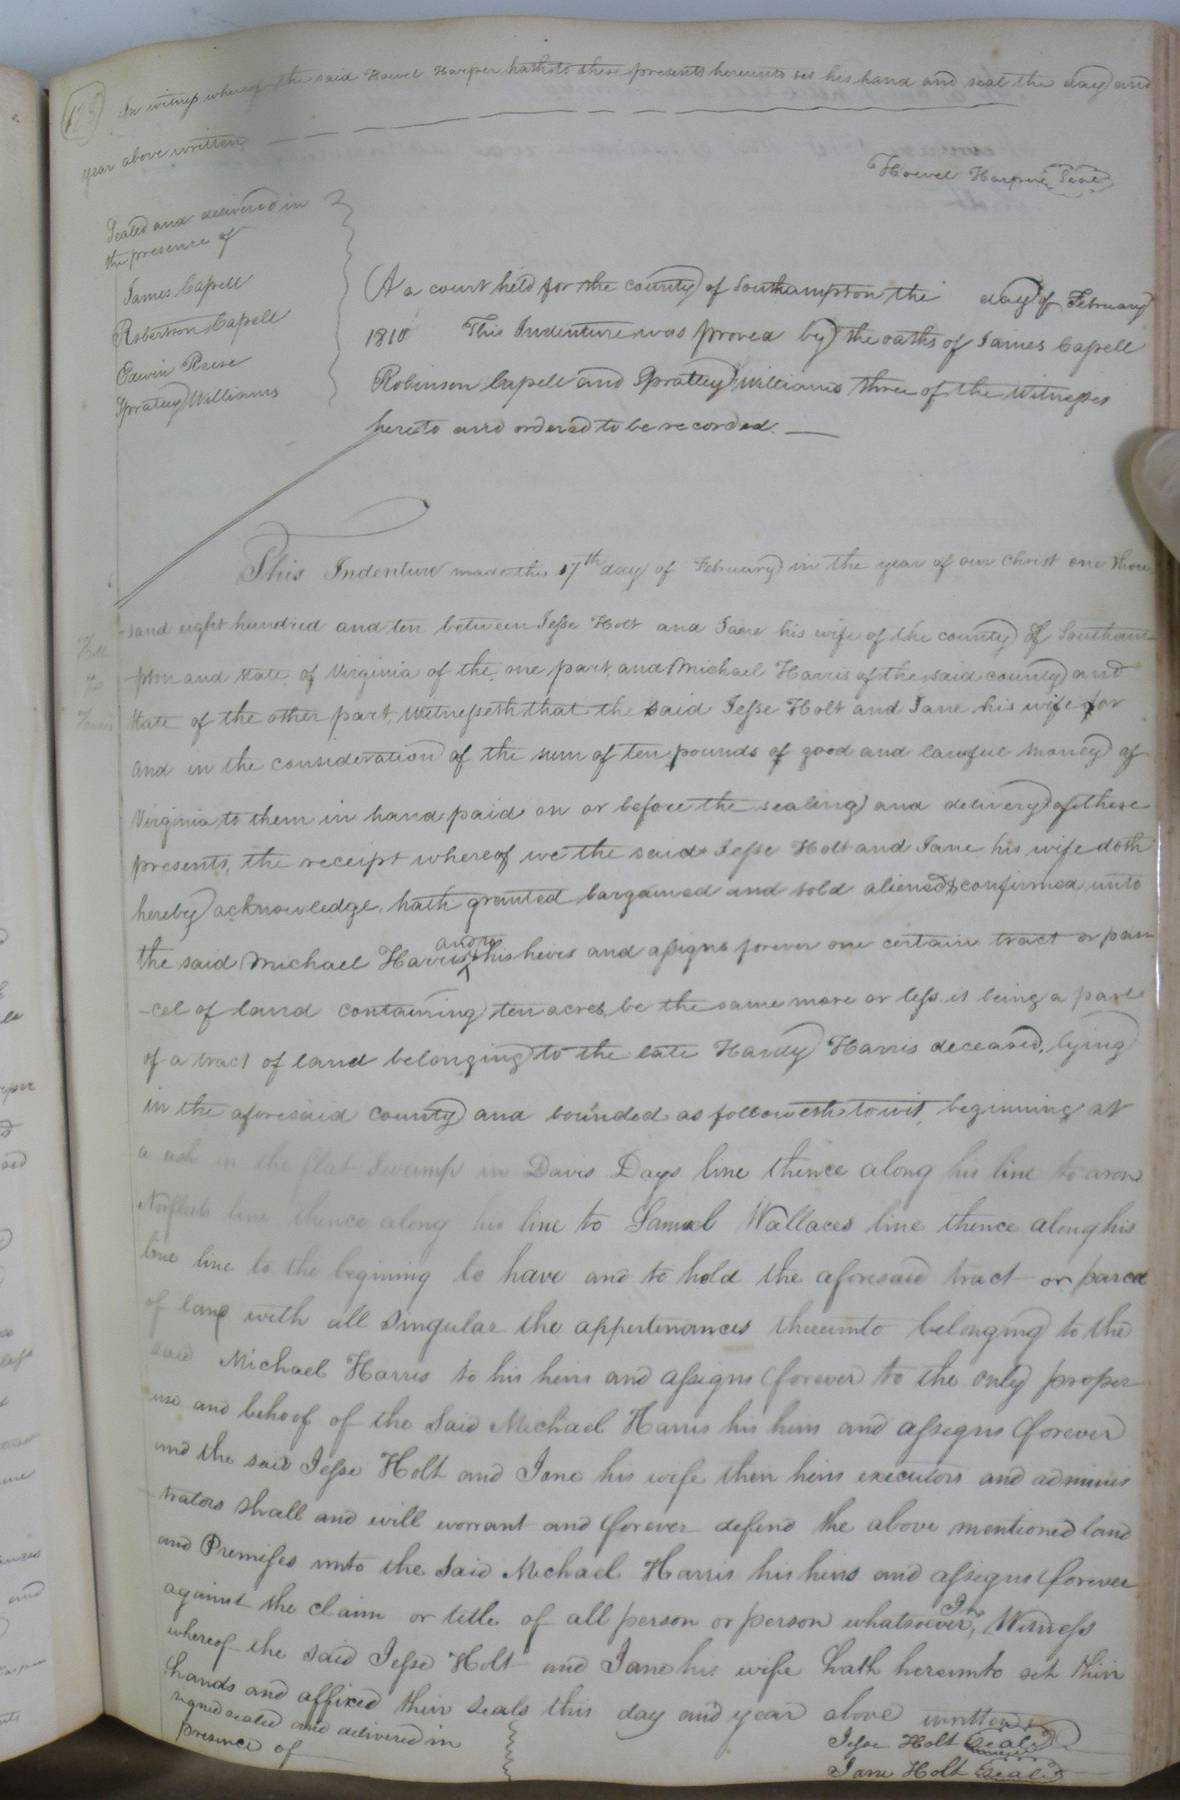 In witness whereof the said Howel Harper hath to these presents hereunto set his hand and seal the day and
year above written
Howel Harper Seal
Sealed and delivered in
the presence of
James Capell
Robertson Capell
Edwin Reese
Spratley Williams
At a court held for the county of Southampton the day of February
1810 This Indenture was proved by the oaths of James Capell
Robinson Capell and Spratley Williams three of the Witnesses
hereto and ordered to be recorded.
This Indenture made this 17th day of February in the year of our Christ one thou
Holt
to
Harris
-sand eight hundred and ten between Jesse Holt and Jane his wife of the county of Southam
-pton and state of Virginia of the one part, and Michael Harris of the said county and
State of the other part, Witnesseth that the said Jesse Holt and Jane his wife for
and in the consideration of the sum of ten pounds of good and lawful money of
Virginia, to them in hand paid on or before the sealing and delivery of these
presents, the receipt whereof we the said Jesse Holt and Jane his wife doth
hereby acknowledge, hath granted bargained and sold aliened & confirmed unto
the said Michael Harris and to his heires and assigns forever one certain tract or par
-cel of land containing ten acres, be the same more or less it being a part
of a tract of land belonging to the late Hardy Harris deceased, lying
in the aforesaid county and bounded as followeth towit, beginning at
a ash in the flat Swamp in Davis Days line thence along his line to aron
line thence along his line to Samuel Wallaces line thence along his
line line to the begining to have and to hold the aforesaid tract or parcel
of land with all Singular the appertenances thereunto belonging to the
said Michael Harris to his heirs and assigns forever to the only proper
use and behoof of the Said Michael Harris his heirs and assigns forever
and the said Jesse Holt and Jane his wife their heirs executors and adminis
trators shall and will warrant and forever defend the above mentioned land
and Premises unto the Said Michael Harris his heirs and assigns forever
against the claim or title of all person or person whatsoever, In Witness
whereof the said Jesse Holt and Jane his wife hath hereunto set their
hands and affixed their seals this day and year above written
signed sealed and delivered in
presence of
Jesse Holt seal
Jane Holt seal